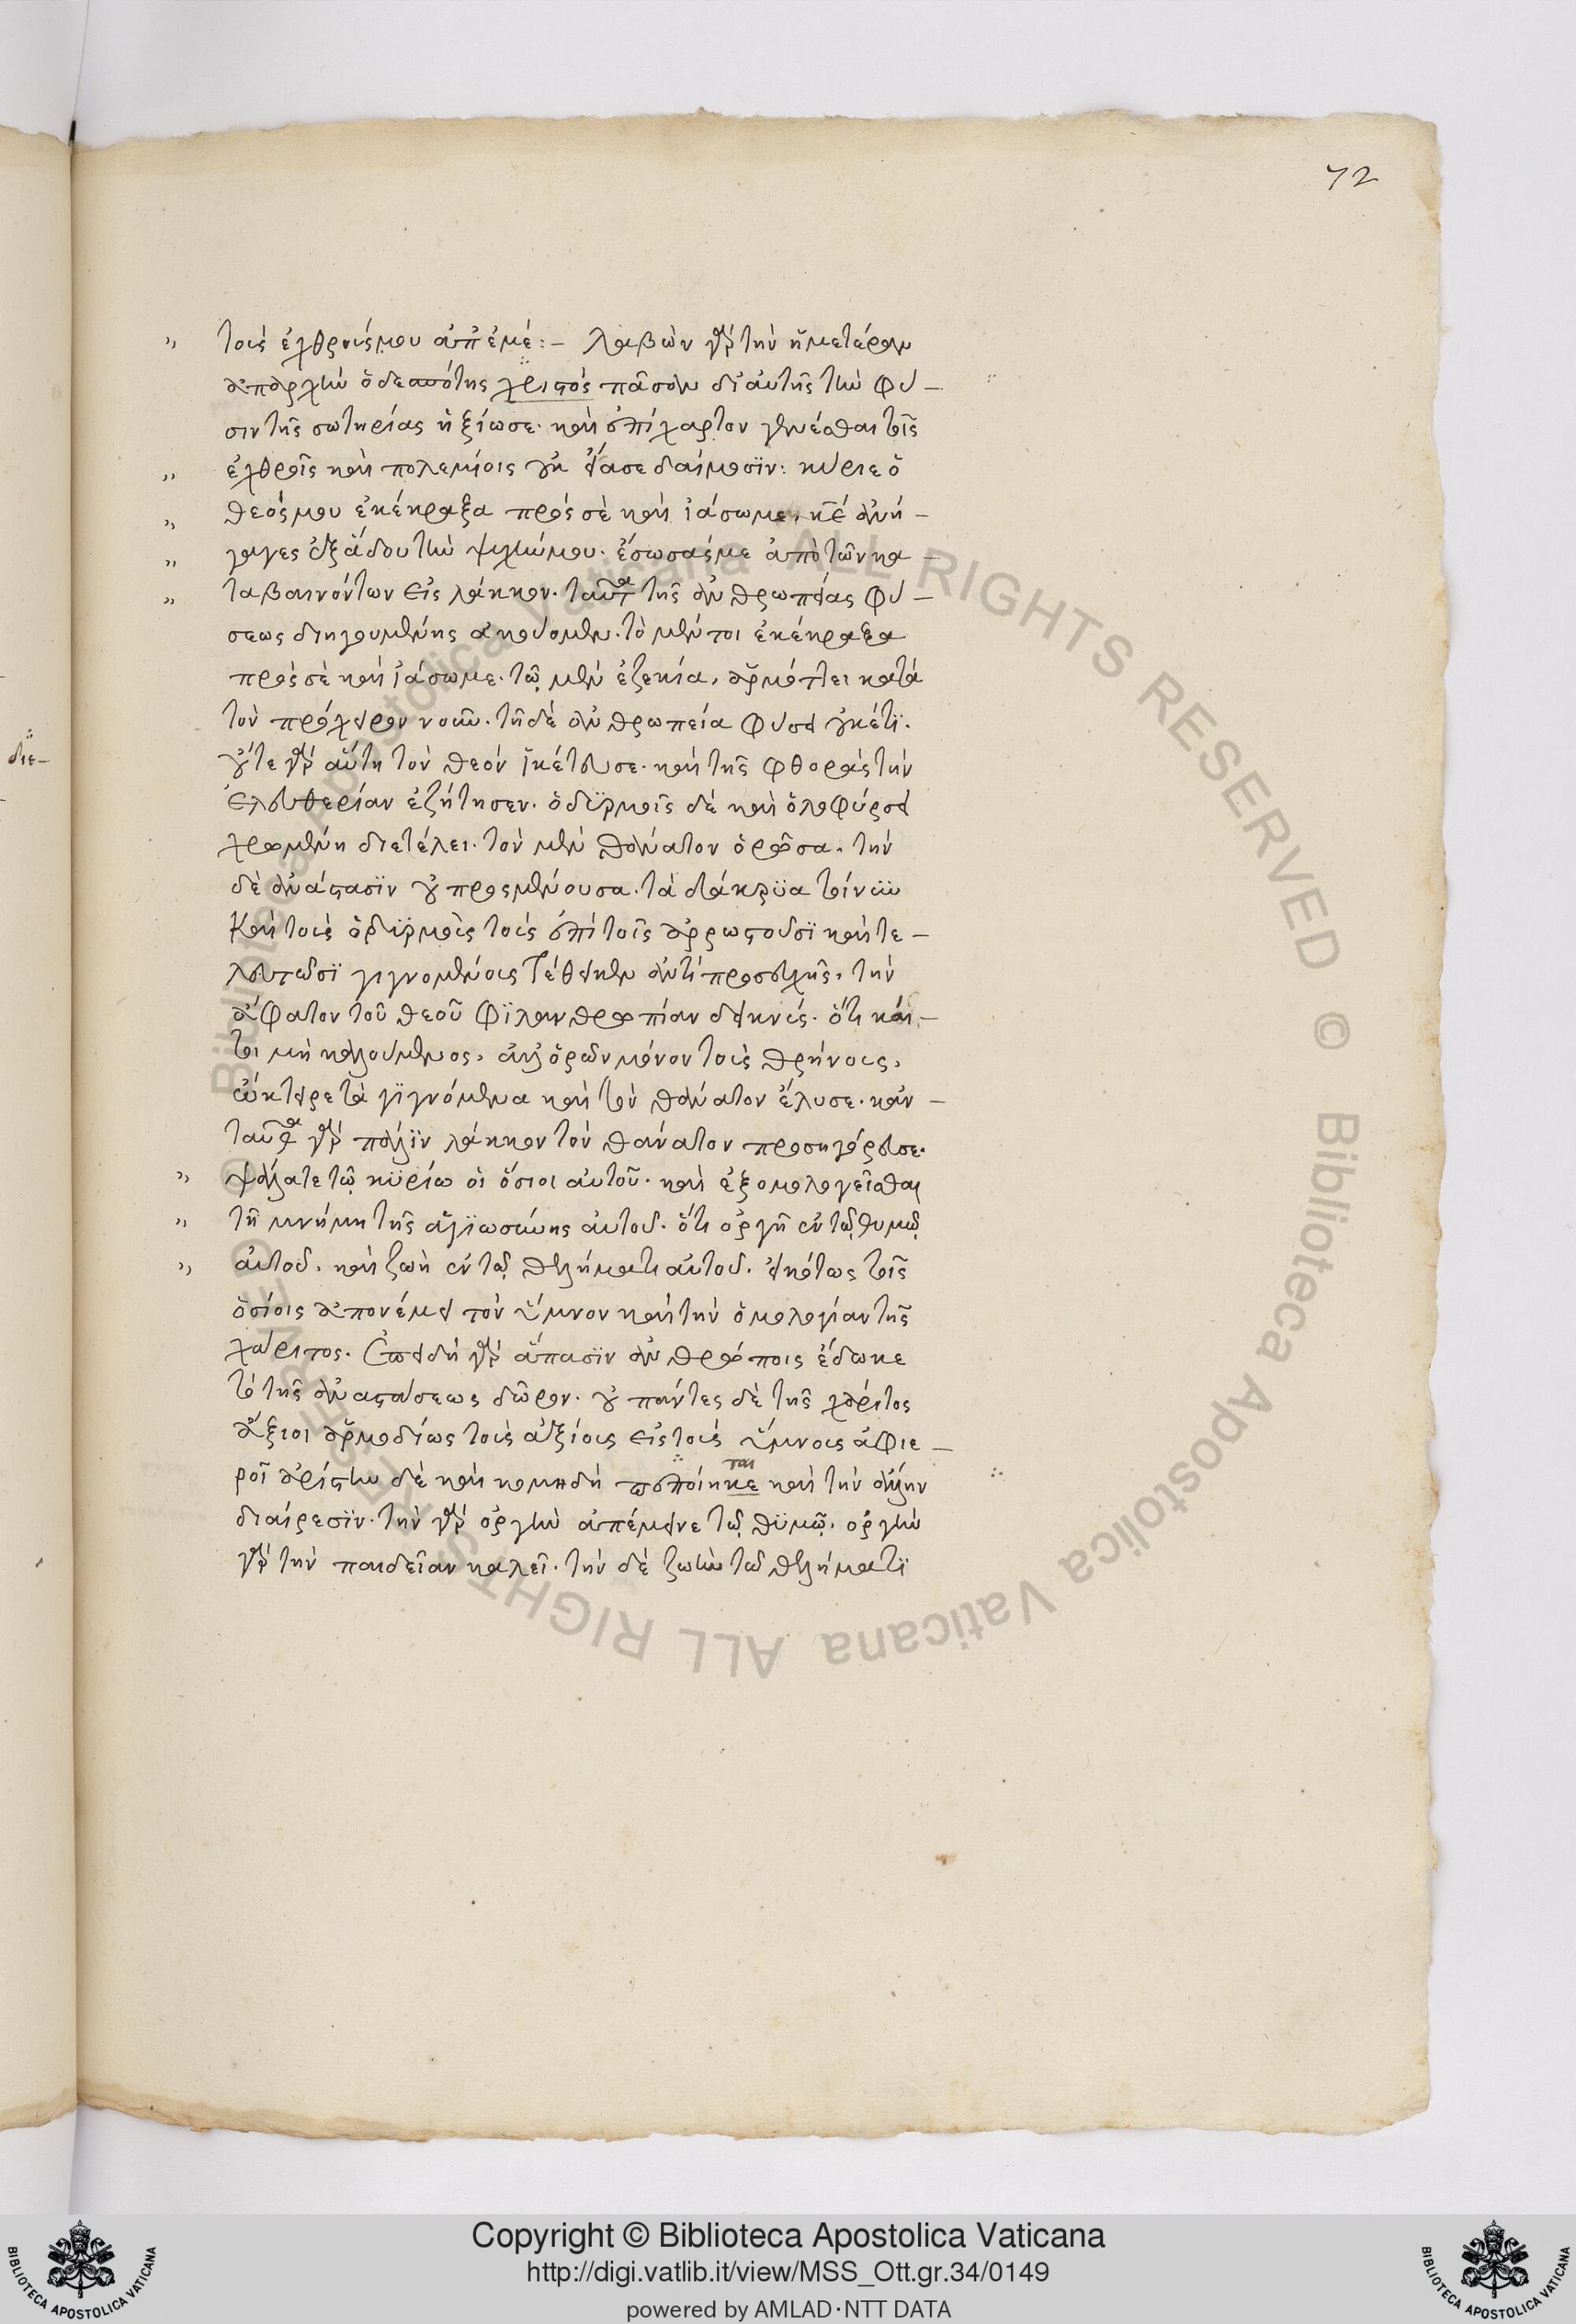 72
τοὺς ἐχθρούς μου ἀπ' ἐμέ :– λαβὼν γὰρ τὴν ἡμετέραν
ἀπαρχὴν ὁ δεσπότης χριστός πᾶσαν δι' αὐτῆς τὴν φύ –
σιν τῆς σωτηρίας ἠξίωσε. καὶ ἐπίχαρτον γενέσθαι τοῖς
ἐχθροῖς καὶ πολεμίοις οὐκ εἴασε δαίμοσϊν : κύριε ὁ
θεός μου ἐκέκραξα πρός σὲ καὶ ἰάσω με. κε ἀνή –
γαγες ἐξ ἅδου τὴν ψυχήν μου. ἔσωσάς με ἀπὸ τῶν κα –
ταβαινόντων εἰς λάκκον. ταῦτα τῆς ἀνθρωπείας φύ –
σεως διηγουμένης ἀκούομεν. τὸ μέντοι ἐκέκραξα
πρός σὲ καὶ ἰάσω με. τῷ μὲν ἐζεκία, ἁρμόττει κατὰ
τὸν πρόχειρον νοῦν. τῇ δὲ ἀνθρωπεία φύσει οὐκέτϊ.
οὔτε γὰρ αὕτη τὸν θεόν ἱκέτευσε. καὶ τῆς φθορᾶς τὴν
ἐλευθερίαν ἐζήτησεν. ὀδϋρμοῖς δὲ καὶ ὀλοφύρσει
χρωμένη διετέλει. τὸν μὲν θάνατον ὁρῶσα. τὴν
δὲ ἀνάστασϊν οὐ προσμένουσα. τὰ δάκρϋα τοίνϋν
καὶ τοὺς ὀδϋρμοὺς τοὺς ἐπὶ τοῖς ἀρρωστοῦσϊ καὶ τε –
λευτῶσϊ γιγνομένους τέθεικεν ἀντὶ προσευχῆς. τὴν
ἄφατον τοῦ θεοῦ φϊλανθρωπίαν δεικνύς. ὅτι καί –
τοι μὴ καλούμενος, ἀλλ' ὁρῶν μόνον τοὺς θρήνους,
ὤκτειρε τὰ γϊγνόμενα καὶ τὸν θάνατον ἔλυσε. κἀν –
ταῦθα γὰρ πάλϊν λάκκον τὸν θάνατον προσηγόρευσε.
ψάλατε τῷ κϋρίω οἱ ὅσιοι αὐτοῦ. καὶ ἐξομολογεῖσθαι
τῇ μνήμη τῆς ἁγϊωσύνης αὐτοῦ. ὅτι ὀργὴ ἐν τῷ θυμῷ
αὐτοῦ. καὶ ζωὴ ἐν τῷ θελήματι αὐτοῦ. εἰκότως τοῖς
ὁσίοις ἀπονέμει τὸν ὕμνον καὶ τὴν ὁμολογίαν τῆς
χάριτος. ἐπειδὴ γὰρ ἅπασϊν ἀνθρώποις ἔδωκε
τὸ τῆς ἀναστάσεως δῶρον. οὐ πάντες δὲ τῆς χάριτος
ἄξιοι ἁρμοδίως τοὺς ἀξίους εἰς τοὺς ὕμνους ἀφιε –
ροῖ ἀρίστην δὲ καὶ κομηδῆ πεποίηκε ται καὶ τὴν ἄλλην
διαίρεσϊν. τὴν γὰρ ὀργὴν ἀπένειμε τῷ θϋμῷ. ὀργὴν
γὰρ τὴν παιδεῖαν καλεῖ. τὴν δὲ ζωὴν τῷ θελήματϊ
διε–
Copyright © Biblioteca Apostolica Vaticana
http://digi.vatlib.it/view/MSS_Ott.gr.34/0149
powered by AMLAD·NTT DATA
BIBLIOTECA APOSTOLICA VATICANA
BIBLIOTECA APOSTOLICA VATICANA
© Biblioteca Apostolica Vaticana ALL RIGHTS RESERVED © Biblioteca Apostolica Vaticana ALL RIGHTS RESERVED